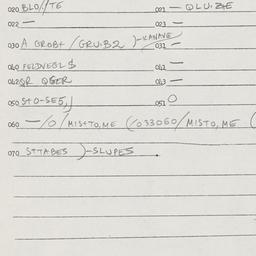 020 BLO//TE 021 — QLU.
022 — 023 —
030 A GROB+ / GRU.B2 }-KANAVE 031 —
040 FELDVEBL $ 042 —
042 QR QGER 043 —
050 STO-SE5, 051 O
060 — /O/ MISTO, ME (/033060/ MISTO, ME (
070 STTABES }-SLUPES .